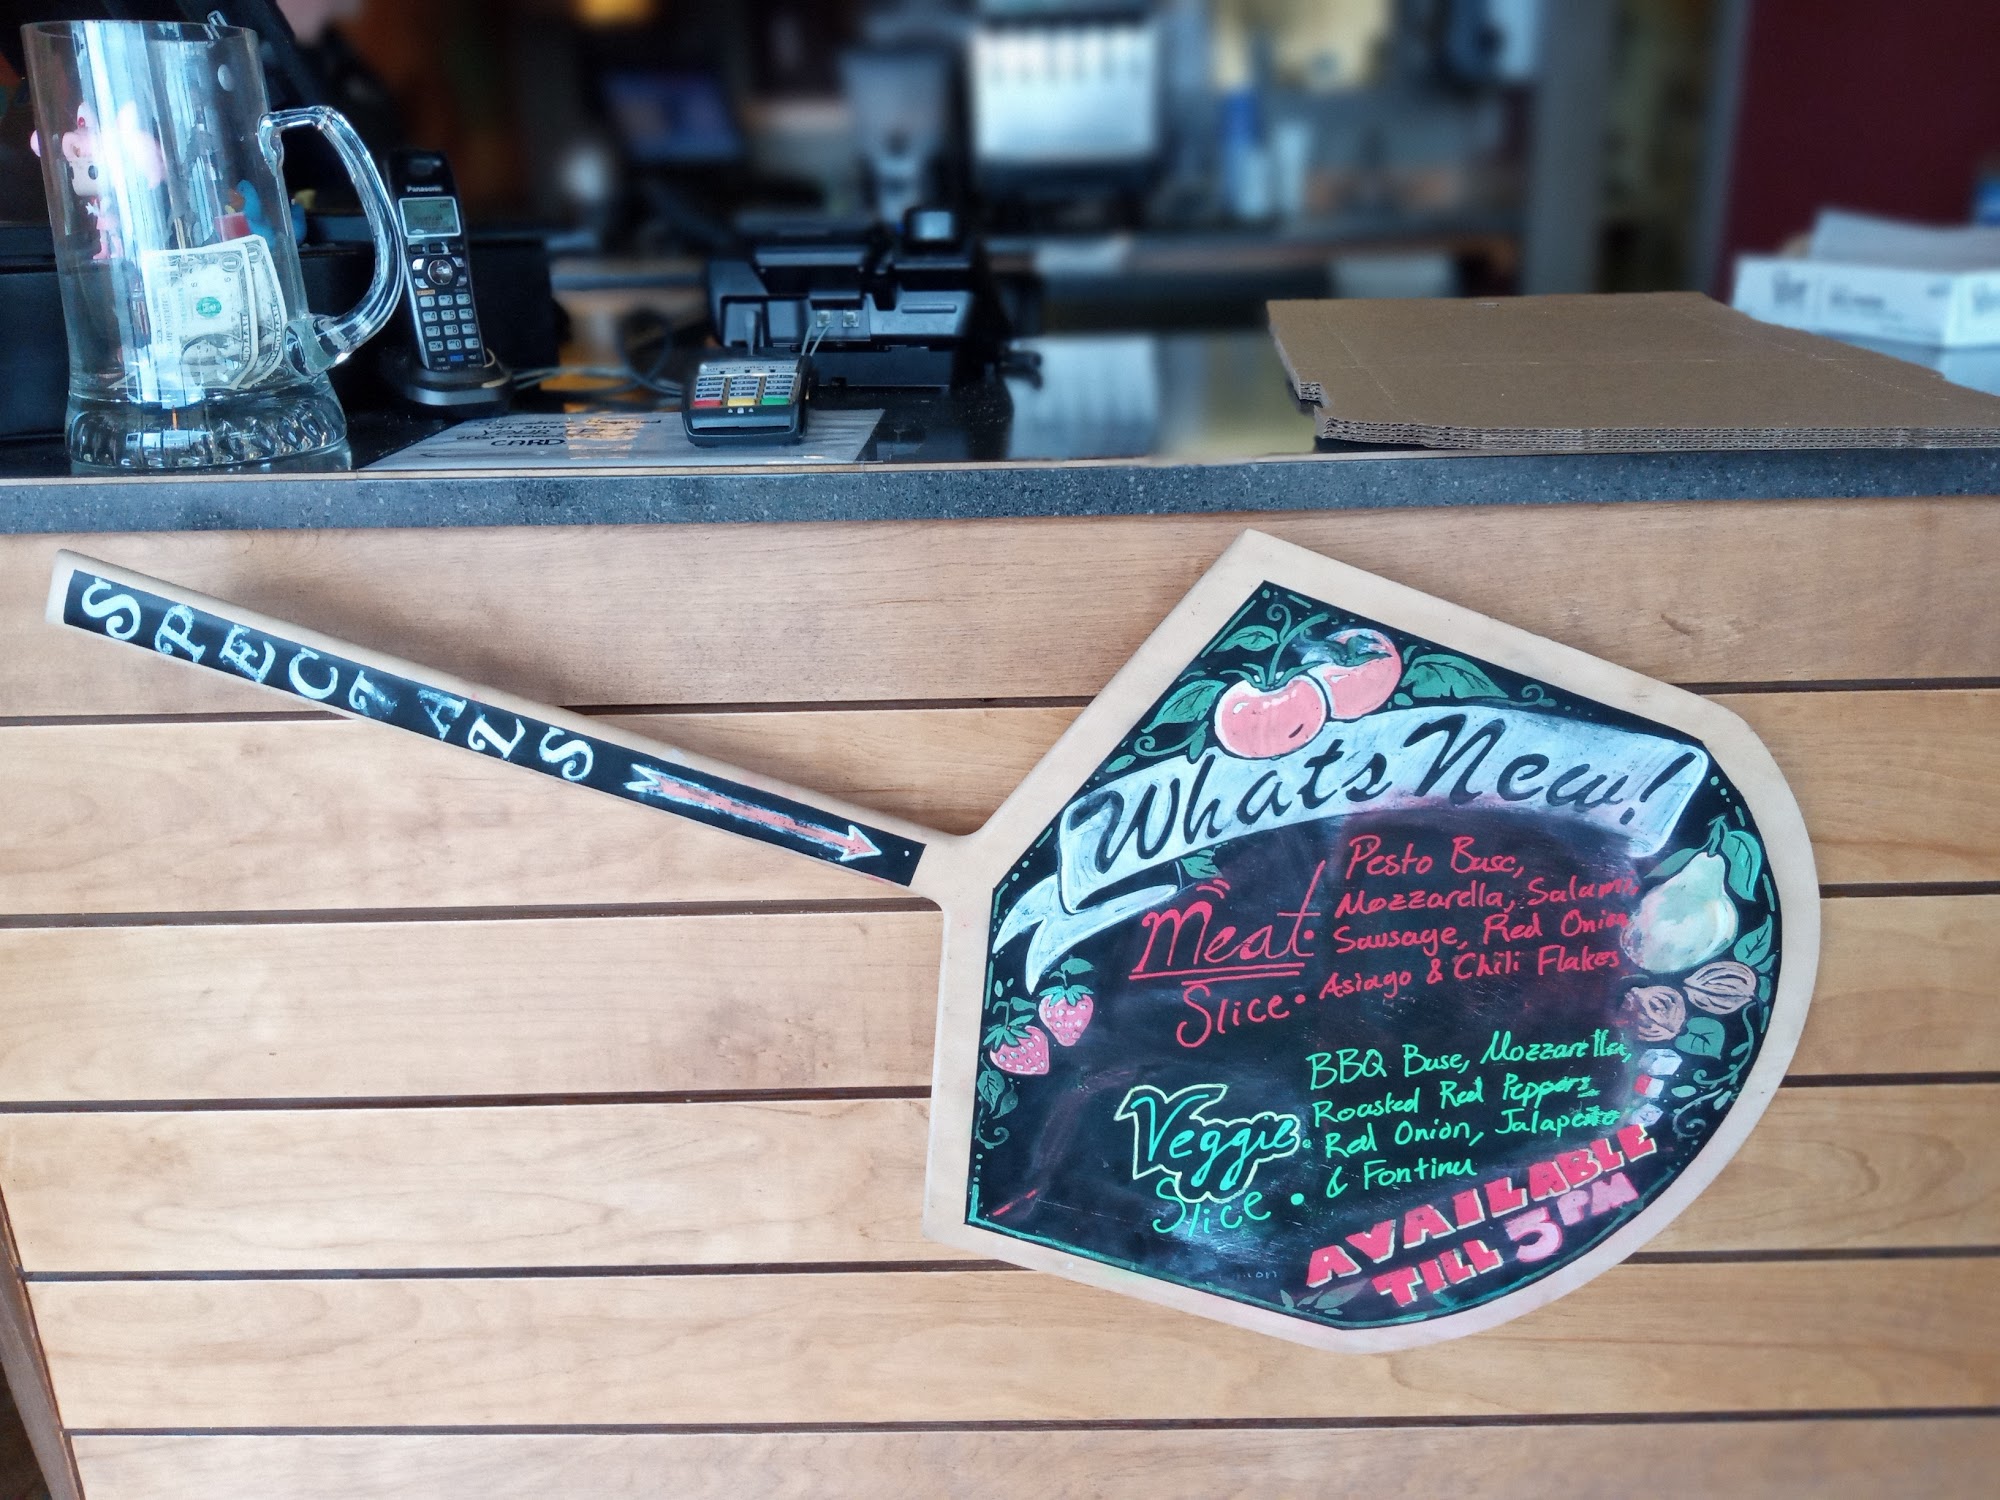 Panasonic
CARD
SPECIALS
Whats New!
Meat
Slice •
Pesto Base,
Mozzarella, Salami,
Sausage, Red Onion
Asiago & Chili Flakes
Veggie
Slice •
BBQ Base, Mozzarella,
Roasted Red Peppers
Red Onion, Jalapeño
& Fontina
AVAILABLE
TILL 3PM